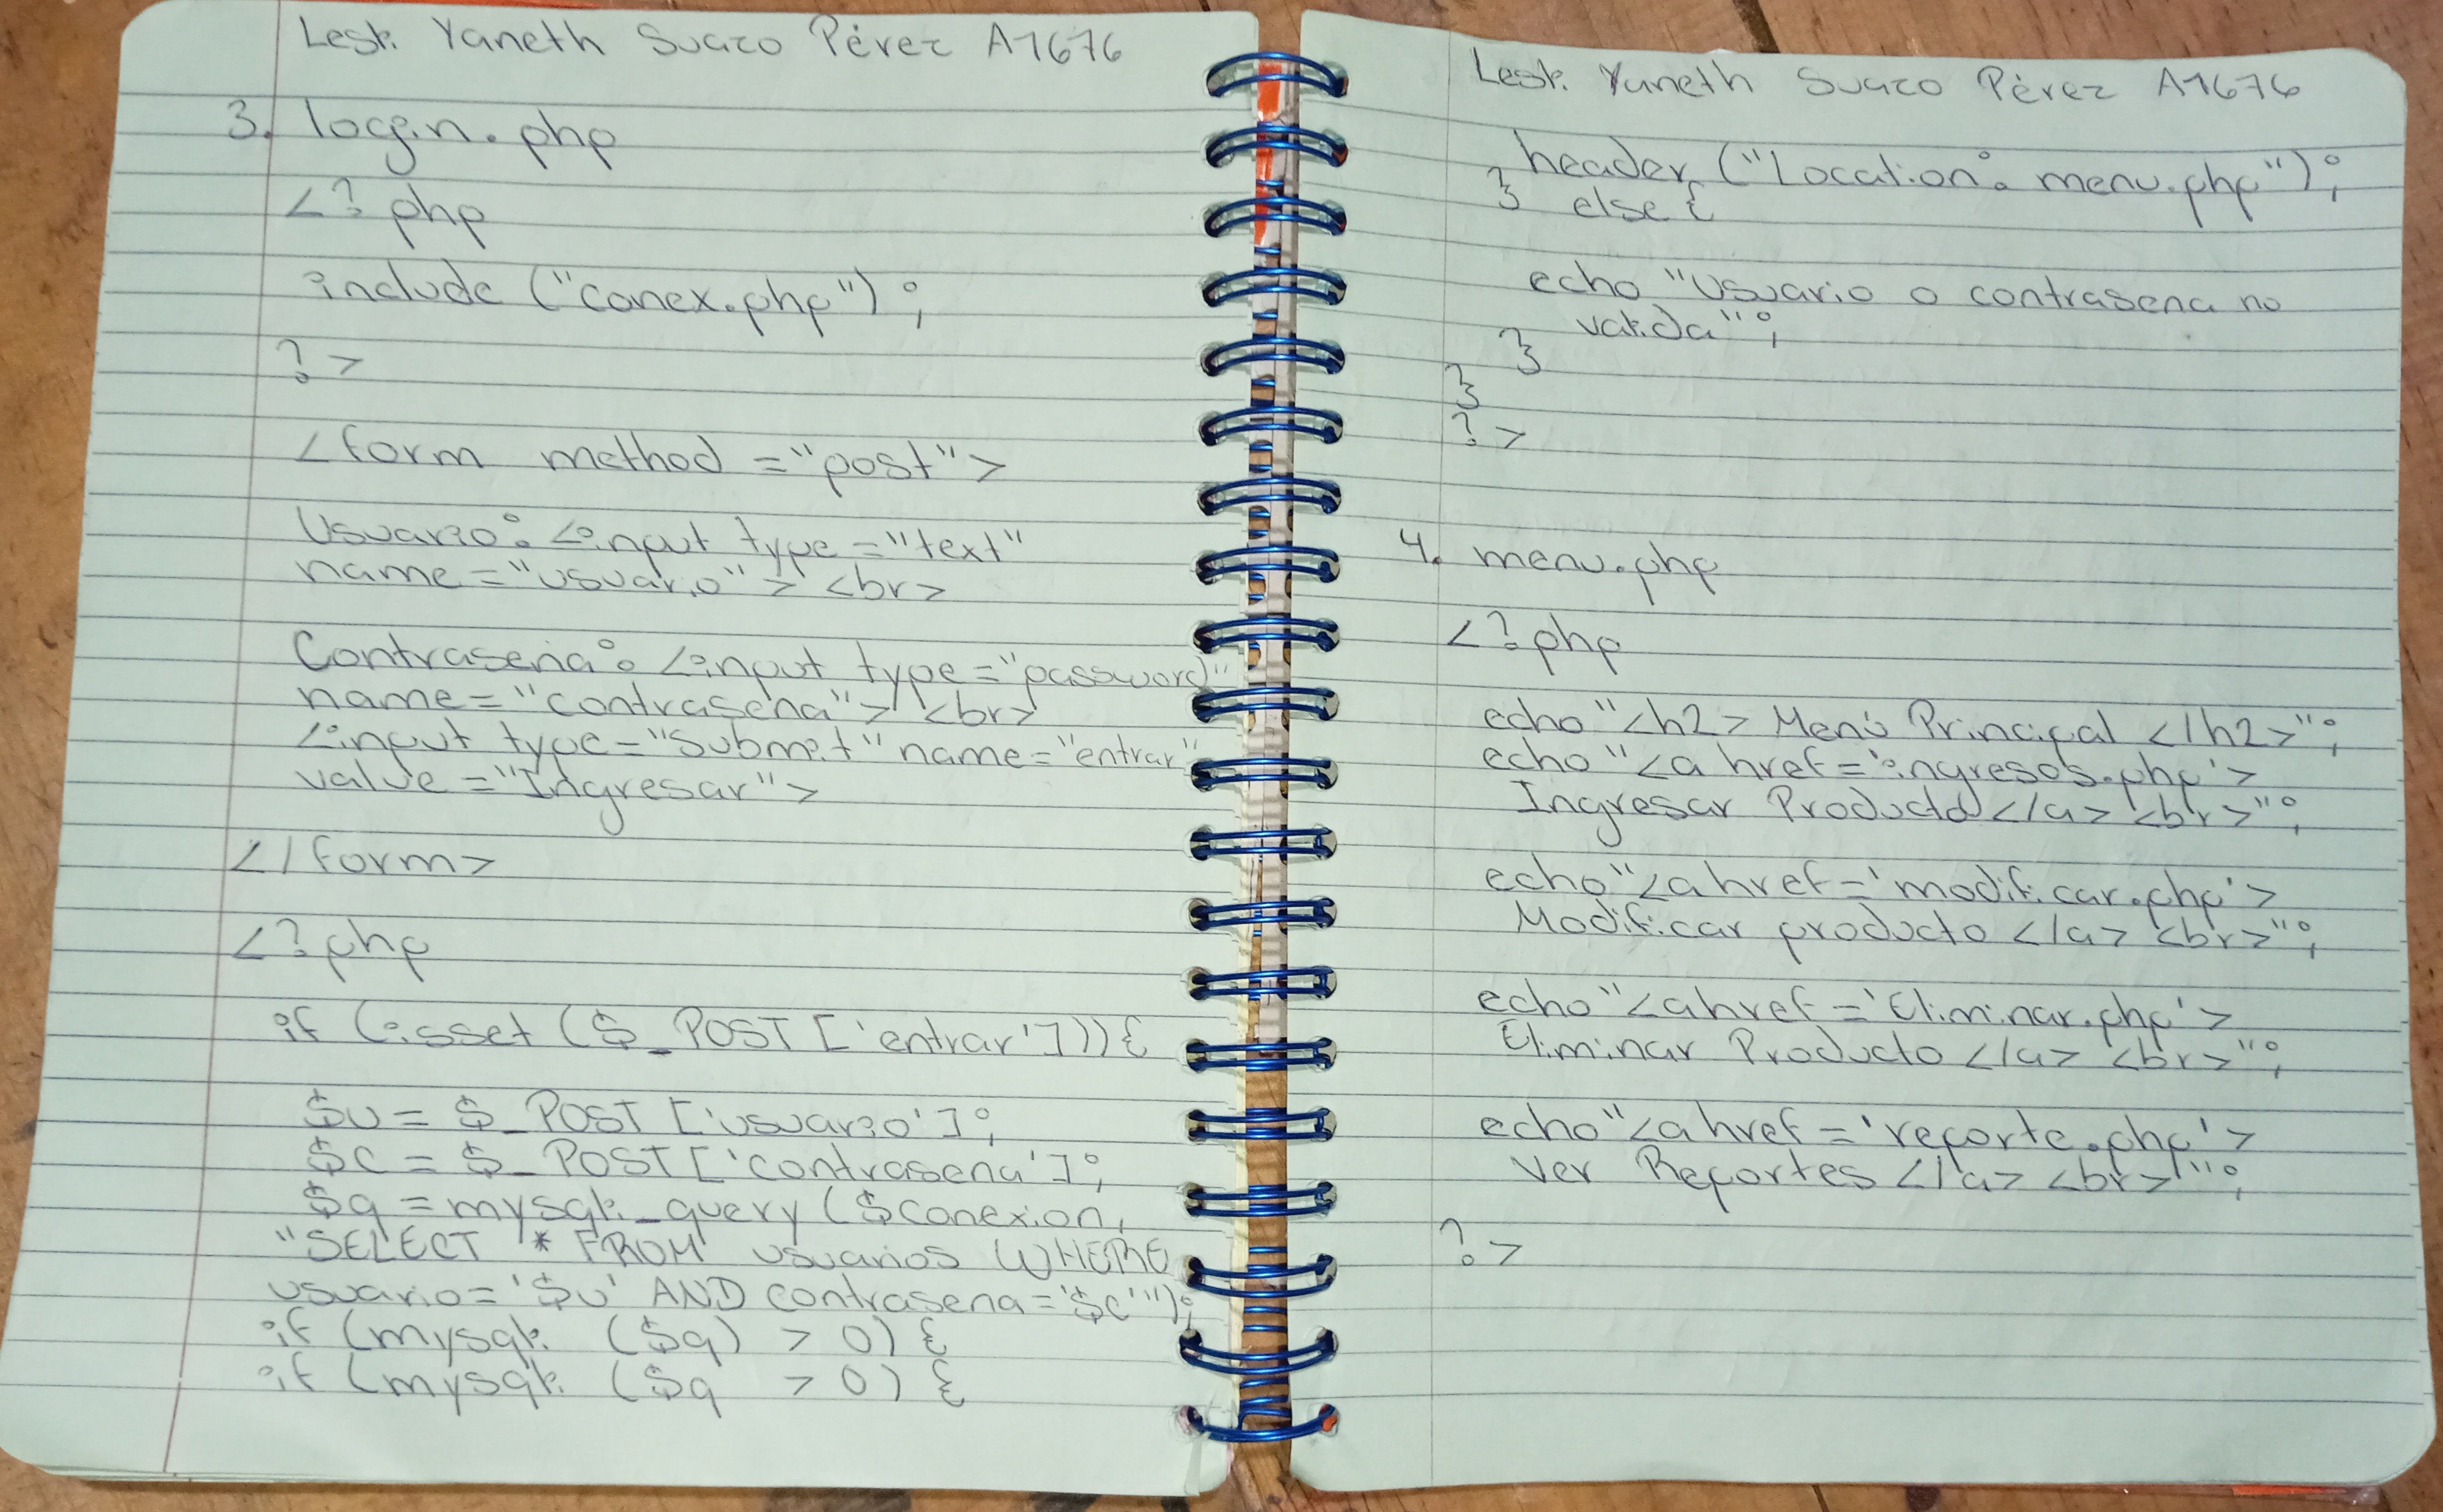 Lesli Yaneth Suazo Pérez A1676
3. login.php
<?php
include ("conex.php");
?>
<form method ="post">
Usuario: <input type ="text"
name ="usuario"> <br>
Contrasena: <input type ="password"
name= "contrasena"> <br>
<input type="Submit" name="entrar"
value ="Ingresar">
</form>
<?php
if (isset ($_POST ['entrar'])){
$u = $_POST ['usuario'];
$c = $_POST ['contrasena'];
$q = mysqli_query ($conexion,
"SELECT * FROM usuarios WHERE
usuario= '$u' AND contrasena='$c'");
if (mysqli ($q) > 0) {
if (mysqli ($q > 0) {
Lesli Yaneth Suazo Pérez A1676
header ("Location: menu.php");
} else {
echo "Usuario o contrasena no
valida";
}
}
?>
4. menu.php
<?php
echo "<h2> Menú Principal </h2>";
echo "<a href='ingresos.php'>
Ingresar Producto </a> <br>";
echo "<a href='modificar.php'>
Modificar producto </a> <br>";
echo "<a href='Eliminar.php'>
Eliminar Producto </a> <br>";
echo "<a href='reporte.php'>
Ver Reportes </a> <br>";
?>